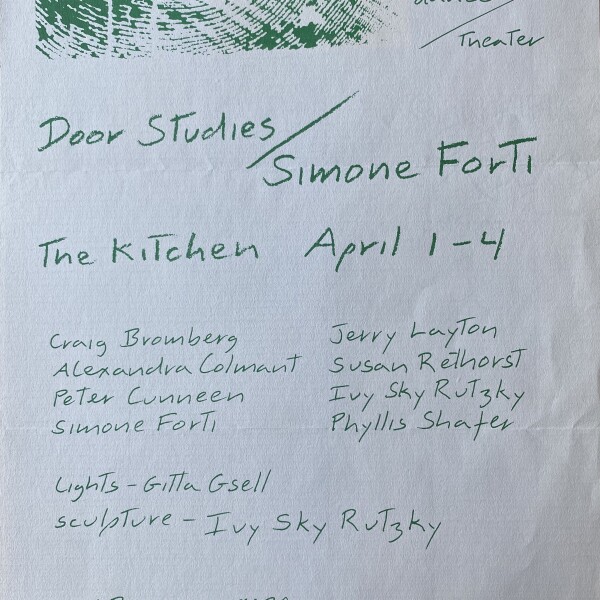 Theater
Door Studies
Simone Forti
The Kitchen April 1-4
Craig Bromberg
Alexandra Colmant
Peter Cunneen
Simone Forti
Jerry Layton
Susan Rethorst
Ivy Sky Rutzky
Phyllis Shafer
Lights - Gitta Gsell
sculpture - Ivy Sky Rutzky